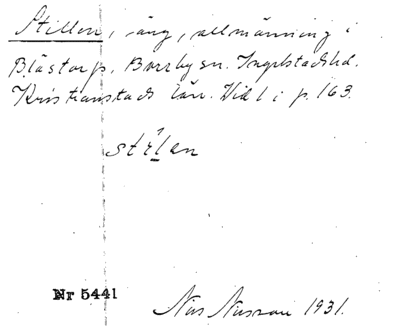 Stillen, äng, allmänning i
Blästorp, Borrby sn. Ingelstads hd.
Kristianstads län. Vidl i p. 163.
stilen
Nr 5441
Nils 1931.